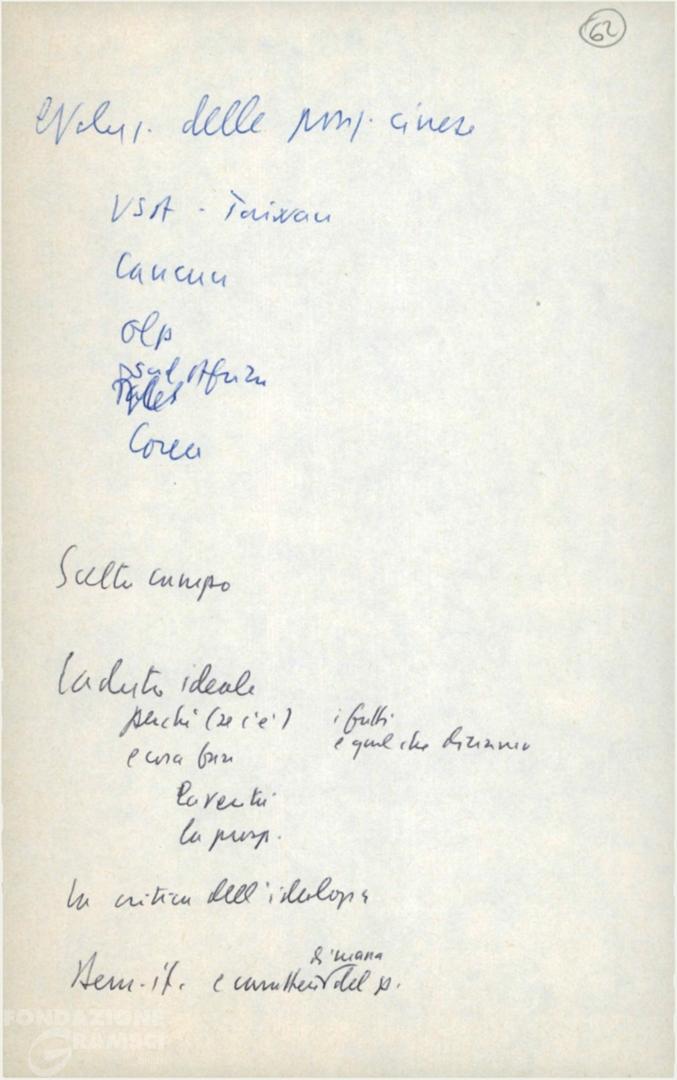 62
Evoluz. delle posiz. cinese
USA - Taiwan
Cancun
Olp
Sud Africa
Corea
Scelta campo
Caduta ideale
perché (se c'è) i fatti
e cosa fare e quel che diciamo
la verità
la prosp.
la critica dell'ideologia
di massa
Dem. it. e carattere del p.
FONDAZIONE
GRAMSCI